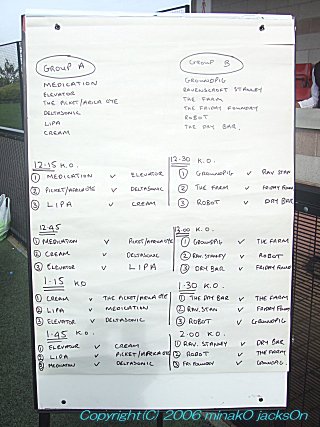 GROUP A
MEDICATION
ELEVATOR
THE PICKET/APOLLA OTE
DELTASONIC
LIPA
CREAM
GROUP B
GROUNDPIG
RAVENSCROFT STANLEY
THE FARM
THE FRIDAY FOUNDRY
ROBOT
THE DAY BAR.
12-15 K.O.
① MEDICATION V ELEVATOR
② PICKET/ V DELTASONIC
③ LIPA V CREAM
12-30 K.O.
① GROUNDPIG V RAV. STAN
② THE FARM V FRIDAY
③ ROBOT V DRY BAR
12-45
① MEDICATION V PICKET/
② CREAM V DELTASONIC
③ ELEVATOR V LIPA
K.O.
① GROUNDPIG V THE FARM
② RAV. STANLEY V ROBOT
③ DRY BAR V FRIDAY
1-15 KO
① CREAM V THE PICKET/
② LIPA V MEDICATION
③ ELEVATOR V DELTASONIC
1-30 K.O.
① THE DAY BAR V THE FARM
② RAV. STAN V FRIDAY
③ ROBOT V GROUNDPIG
1-45 K.O.
① ELEVATOR V CREAM
② LIPA V PICKET/
③ MEDICATION V DELTASONIC
2-00 K.O.
① RAV. STANLEY V DRY BAR
② ROBOT V THE FARM
③ V
Copyright(C) 2006 minakO jacksOn